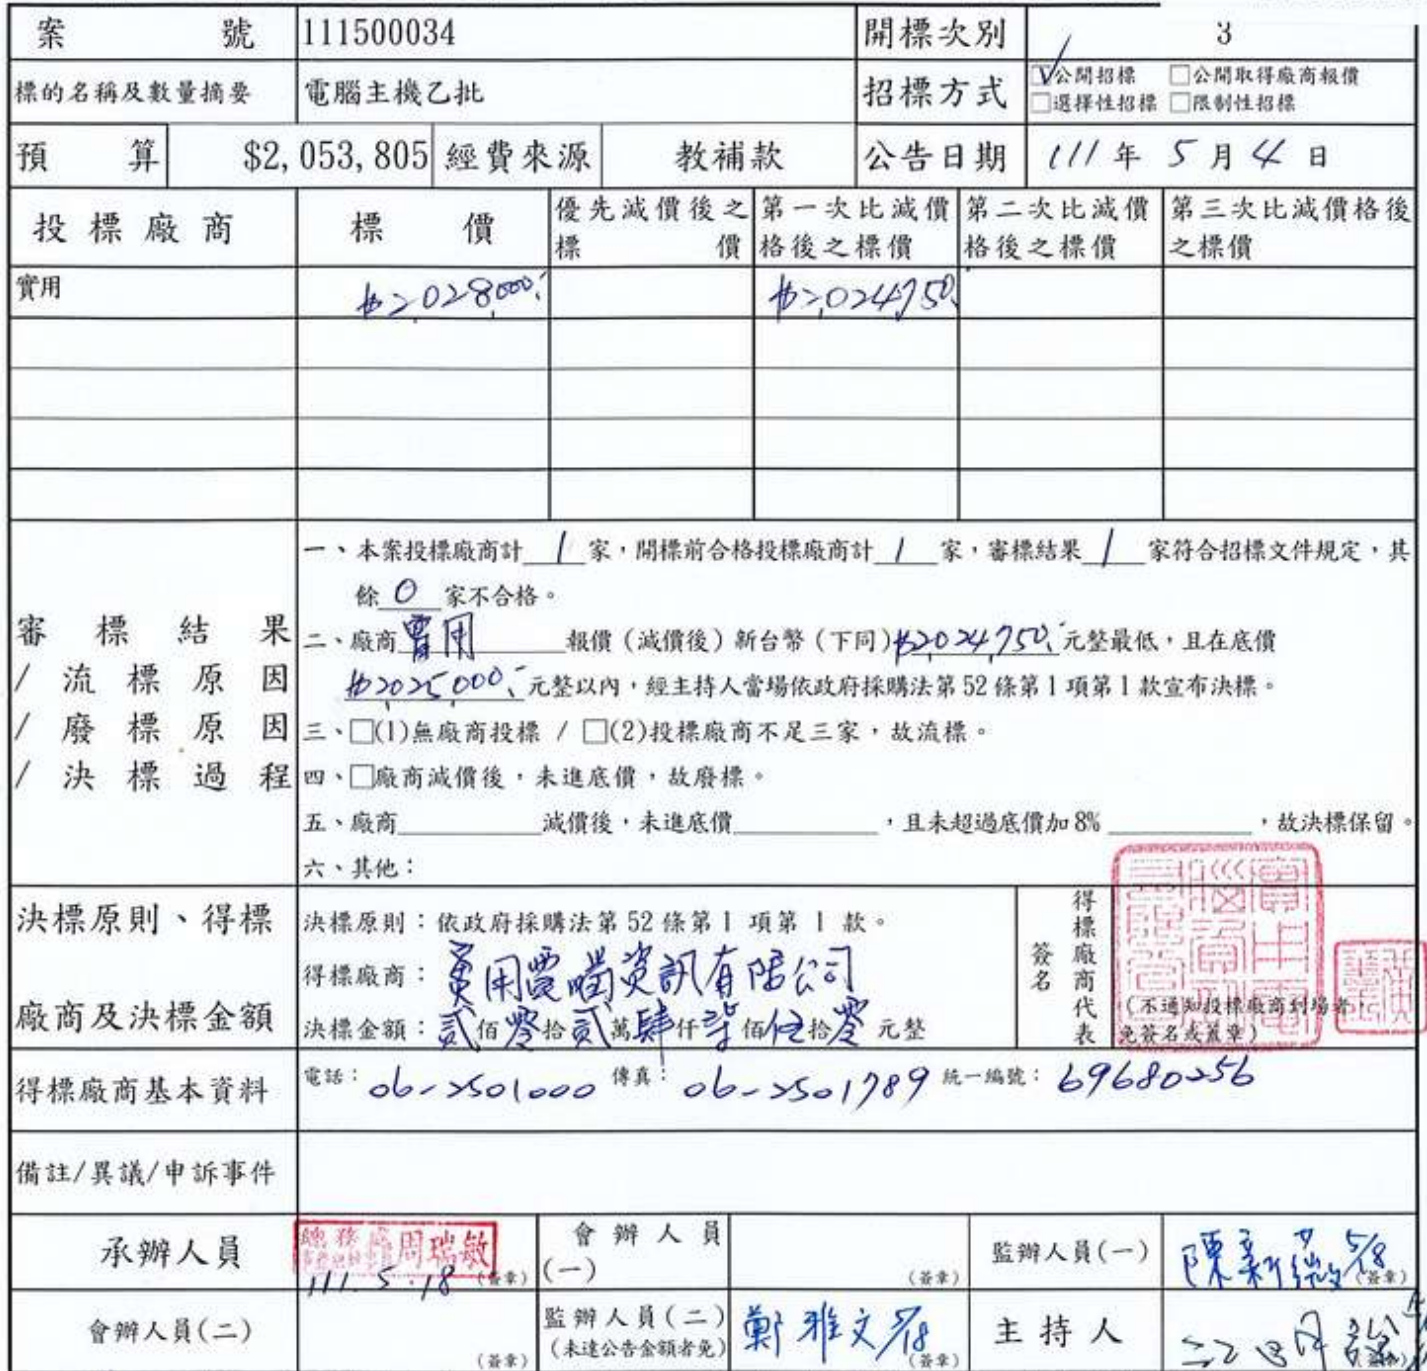 案號 111500034 開標次別 3
標的名稱及數量摘要 電腦主機乙批 招標方式 ☑公開招標 □公開取得廠商報價
□選擇性招標 □限制性招標
預算 $2,053,805 經費來源 教補款 公告日期 111年5月4日
投標廠商 標價 優先減價後之標價 第一次比減價格後之標價 第二次比減價格後之標價 第三次比減價格後之標價
實用 $2,028,000.- $2,024,750.
審標結果/流標原因/廢標原因/決標過程
一、本案投標廠商計 1 家,開標前合格投標廠商計 1 家,審標結果 1 家符合招標文件規定,其
餘 0 家不合格。
二、廠商實用 報價(減價後)新台幣(下同)$2,024,750.-元整最低,且在底價
$2,025,000.-元整以內,經主持人當場依政府採購法第52條第1項第1款宣布決標。
三、□(1)無廠商投標 / □(2)投標廠商不足三家,故流標。
四、□廠商減價後,未進底價,故廢標。
五、廠商____減價後,未進底價____,且未超過底價加8%____,故決標保留。
六、其他:
決標原則、得標廠商及決標金額
決標原則:依政府採購法第52條第1項第1款。
得標廠商:實用電腦資訊有限公司
決標金額:貳佰零拾貳萬肆仟柒佰伍拾零元整
得標廠商代表簽名
(不通知投標廠商到場者,
免簽名或蓋章)
得標廠商基本資料 電話:06-2501000 傳真:06-2501789 統一編號:69680256
備註/異議/申訴事件
承辦人員 總務 周瑞敏 111.5.18 (簽章) 會辦人員(一) (簽章) 監辦人員(一) 5/18 (簽章)
會辦人員(二) (簽章) 監辦人員(二) (未達公告金額者免) 鄭雅文 5/18 (簽章) 主持人